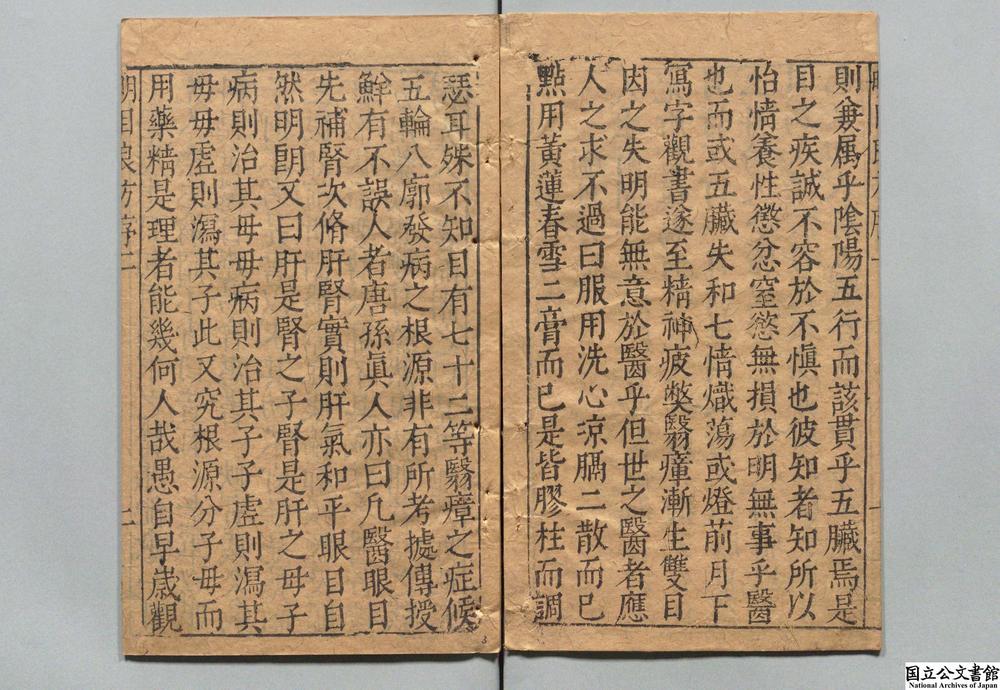 則兼属乎陰陽五行而該貫乎五臟焉是
目之疾誠不容於不慎也彼知者知所以
怡情養性懲忿窒慾無損於明無事乎醫
也而或五臟失和七情熾蕩或燈前月下
寫字觀書遂至精神疲弊翳瘴漸生雙目
因之失明能無意於醫乎但世之醫者應
人之求不過曰服用洗心凉膈二散而已
點用黃蓮春雪二膏而已是皆膠柱而調
瑟耳殊不知目有七十二等翳瘴之症候
五輪八廓發病之根源非有所考據傳授
鮮有不誤人者唐孫眞人亦曰凡醫眼目
先補腎次脩肝腎實則肝氣和平眼目自
然明朗又曰肝是腎之子腎是肝之母子
病則治其母母病則治其子子虛則瀉其
母母虛則瀉其子此又究根源分子母而
用藥精是理者能幾何人哉愚自早歲觀
明目良方序二
二
国立公文書館
National Archives of Japan